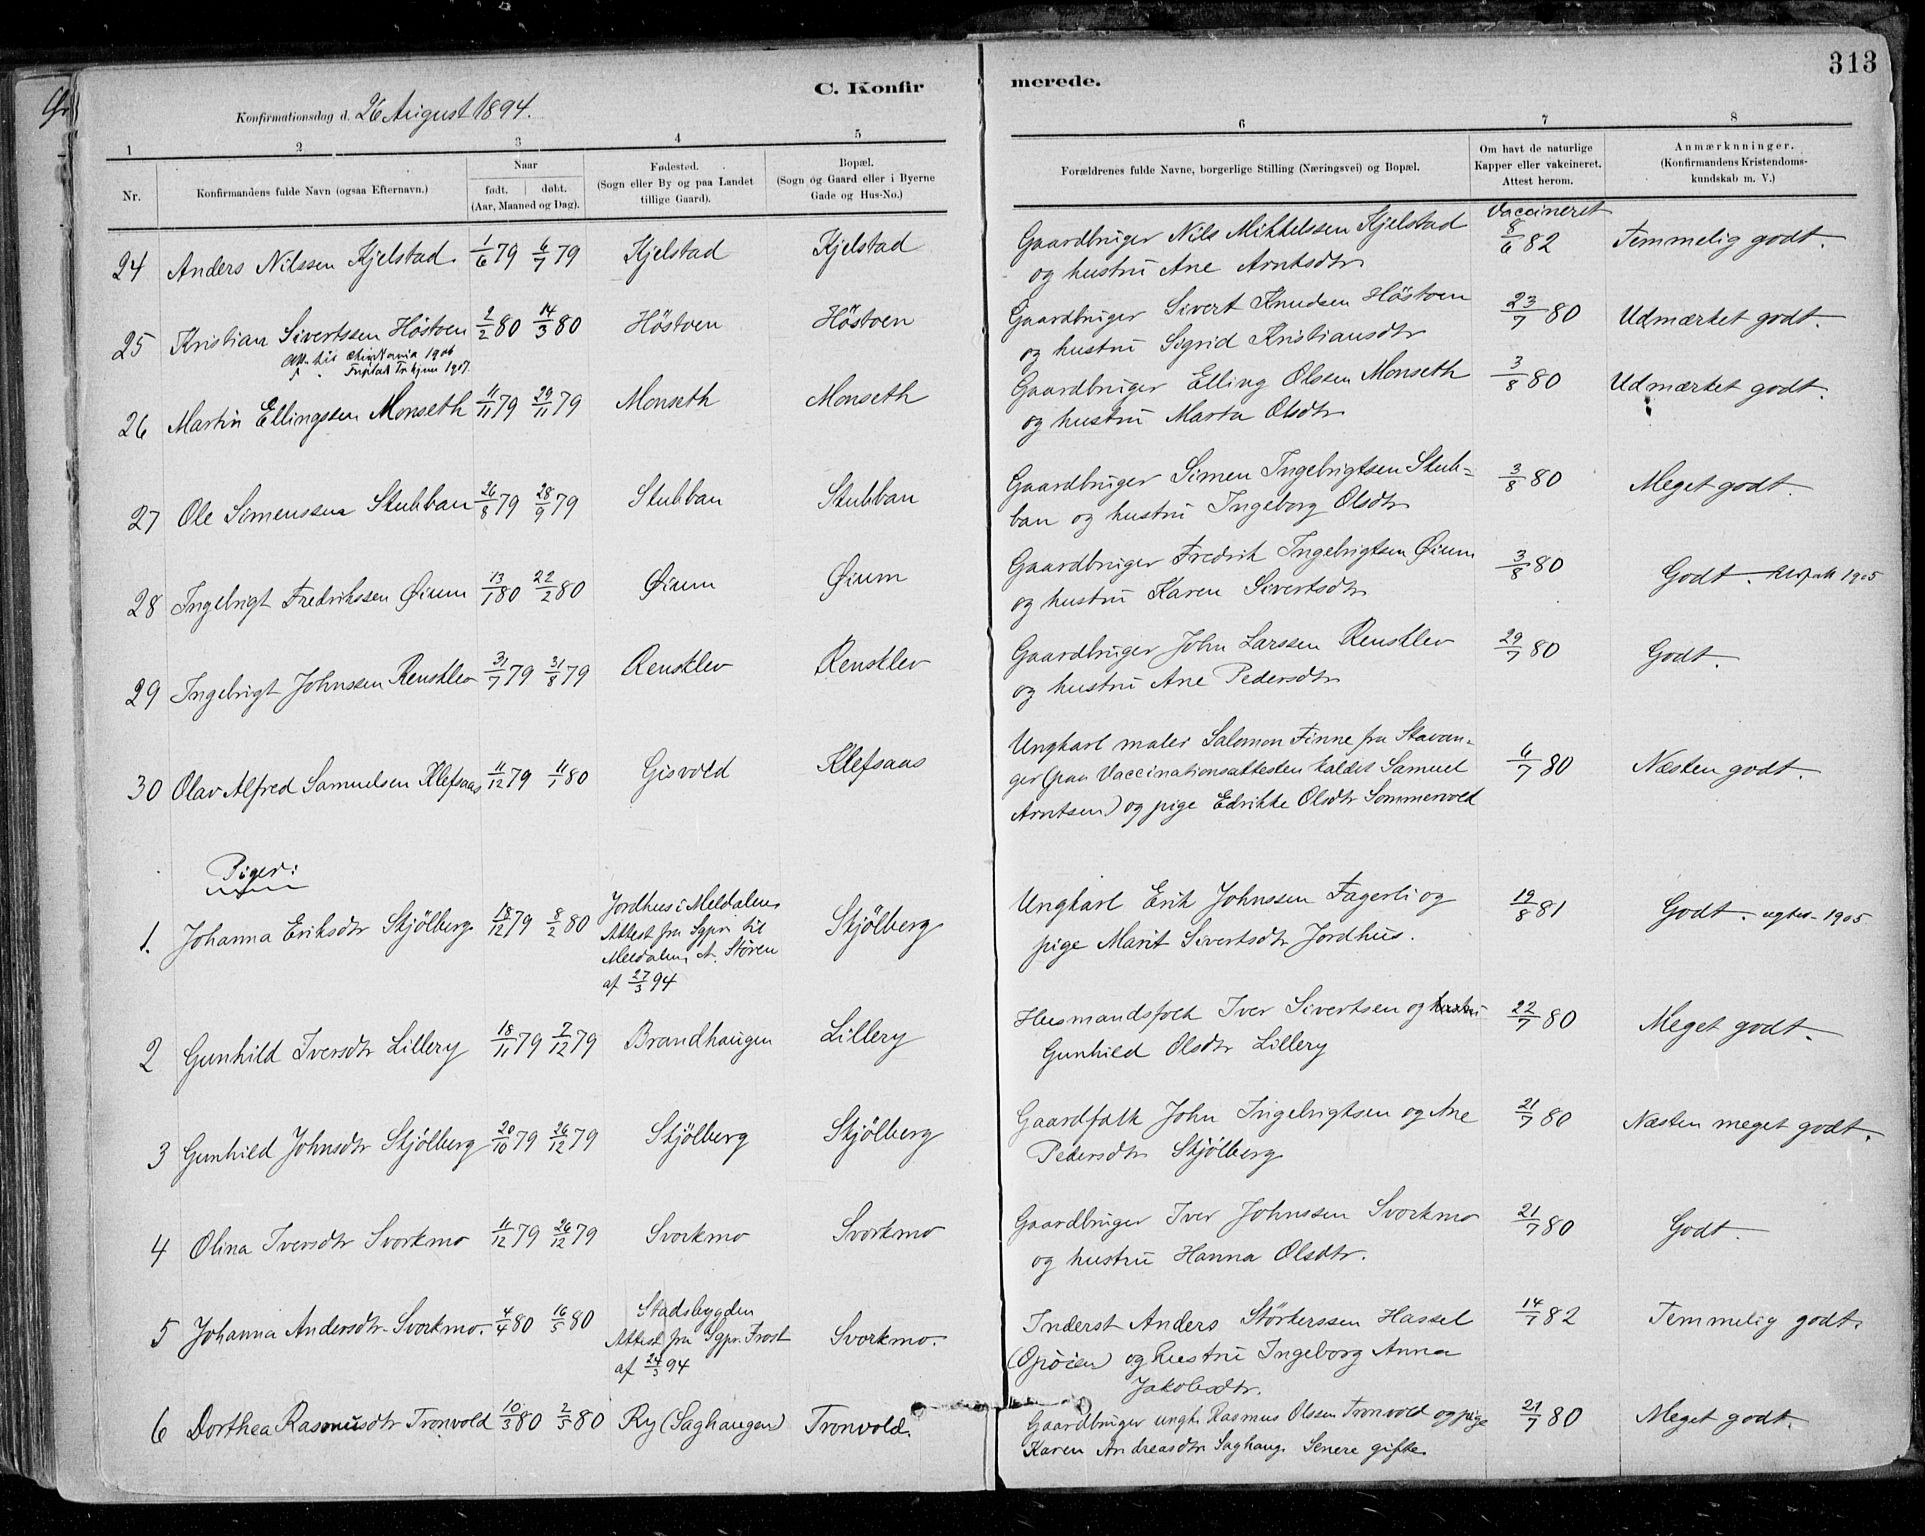 313
C. Konfirmerede.
Konfirmationsdag d. 26 August 1894.
1 2 3 4 5 6 7 8
Nr.
Konfirmandens fulde Navn (ogsaa Efternavn.)
Naar
født. døbt.
(Aar, Maaned og Dag).
Fødested.
(Sogn eller By og paa Landet
tillige Gaard).
Bopæl.
(Sogn og Gaard eller i Byerne
Gade og Hus-No.)
Forældrenes fulde Navne, borgerlige Stilling (Næringsvei) og Bopæl.
Om havt de naturlige
Kapper eller vakcineret.
Attest herom.
Anmærkninger.
(Konfirmandens Kristendoms-
kundskab m. V.)
24 Anders Nilssen Kjelstad. 1/6 79 6/7 79 Kjelstad Kjelstad
Gaardbruger Nils Mikkelssen Kjelstad
og hustru Ane Arntsdtr
Vaccineret
8/6 82 Temmelig godt.
25 Kristian Sivertssen Höstoen 2/2 80 14/3 80 Höstoen Höstoen
Att. til 1906
1907.
Gaardbruger Sivert Knudsen Höstoen
og hustru Sigrid Kristiansdtr
23/7 80 Udmærket godt.
26 Martin Ellingssen Monseth 11/11 79 29/11 79 Monseth Monseth
Gaardbruger Elling Olssen Monseth
og hustru Marta Olsdtr
3/8 80 Udmærket godt.
27 Ole Simenssen Stubban 26/8 79 28/9 79 Stubban Stubban
Gaardbruger Simen Ingebrigtsen Stub=
ban og hustru Ingeborg Olsdtr
3/8 80 Meget godt.
28 Ingebrigt Fredrikssen Øium 13/1 80 22/2 80 Øium Øium
Gaardbruger Fredrik Ingebrigtsen Øium
og hustru Karen Sivertsdtr
3/8 80 Godt. 1905
29 Ingebrigt Johnssen Rensklev 31/7 79 31/8 79 Rensklev Rensklev
Gaardbruger John Larssen Rensklev
og hustru Ane Pedersdtr
29/7 80 Godt.
30 Olav Alfred Samuelsen Klefsaas 11/12 79 11/1 80 Gisvold Klefsaas
Ungkarl maler Salomon Finne fra Stavan-
ger (paa Vaccinationsattesten kaldet Samuel
Arntsen) og pige Edrikke Olsdtr Sommervold
6/7 80 Næsten godt.
Piger:
1. Johanna Eriksdtr Skjölberg 18/12 79 8/2 80 Jordhus i Meldalen. Skjölberg
Attest fra Sgpr. til
Meldalen, A. Støren
af 27/3 94
Ungkarl Erik Johnssen Fagerli og
pige Marit Sivertsdtr Jordhus.
19/8 81 Godt. 1905
2 Gunhild Iversdtr Lillery 18/11 79 7/12 79 Brandhaugen Lillery
Husmandsfolk Iver Sivertsen og hustru
Gunhild Olsdtr Lillery
22/7 80 Meget godt.
3 Gunhild Johnsdtr Skjölberg 20/10 79 26/12 79 Skjölberg Skjölberg
Gaardfolk John Ingebrigtsen og Ane
Pedersdtr Skjölberg
21/7 80 Næsten meget godt.
4 Olina Iversdtr Svorkmo 11/12 79 26/12 79 Svorkmo Svorkmo
Gaardbruger Iver Johnssen Svorkmo
og hustru Hanna Olsdtr.
21/7 80 Godt.
5 Johanna Andersdtr. Svorkmo. 4/4 80 16/5 80 Stadsbygden Svorkmo.
Attest fra Sgpr. Frost
af 24/3 94
Inderst Anders Störkerssen Hassel
(Opöien) og hustru Ingeborg Anna
Jakobsdtr.
14/7 82 Temmelig godt.
6 Dorthea Rasmusdtr Tronvold 10/3 80 2/5 80 Ry (Saghaugen) Tronvold.
Gaardbruger ungk. Rasmus Olssen Tronvold og pige
Karen Andreasdtr Saghaug. Senere gifte.
21/7 80 Meget godt.